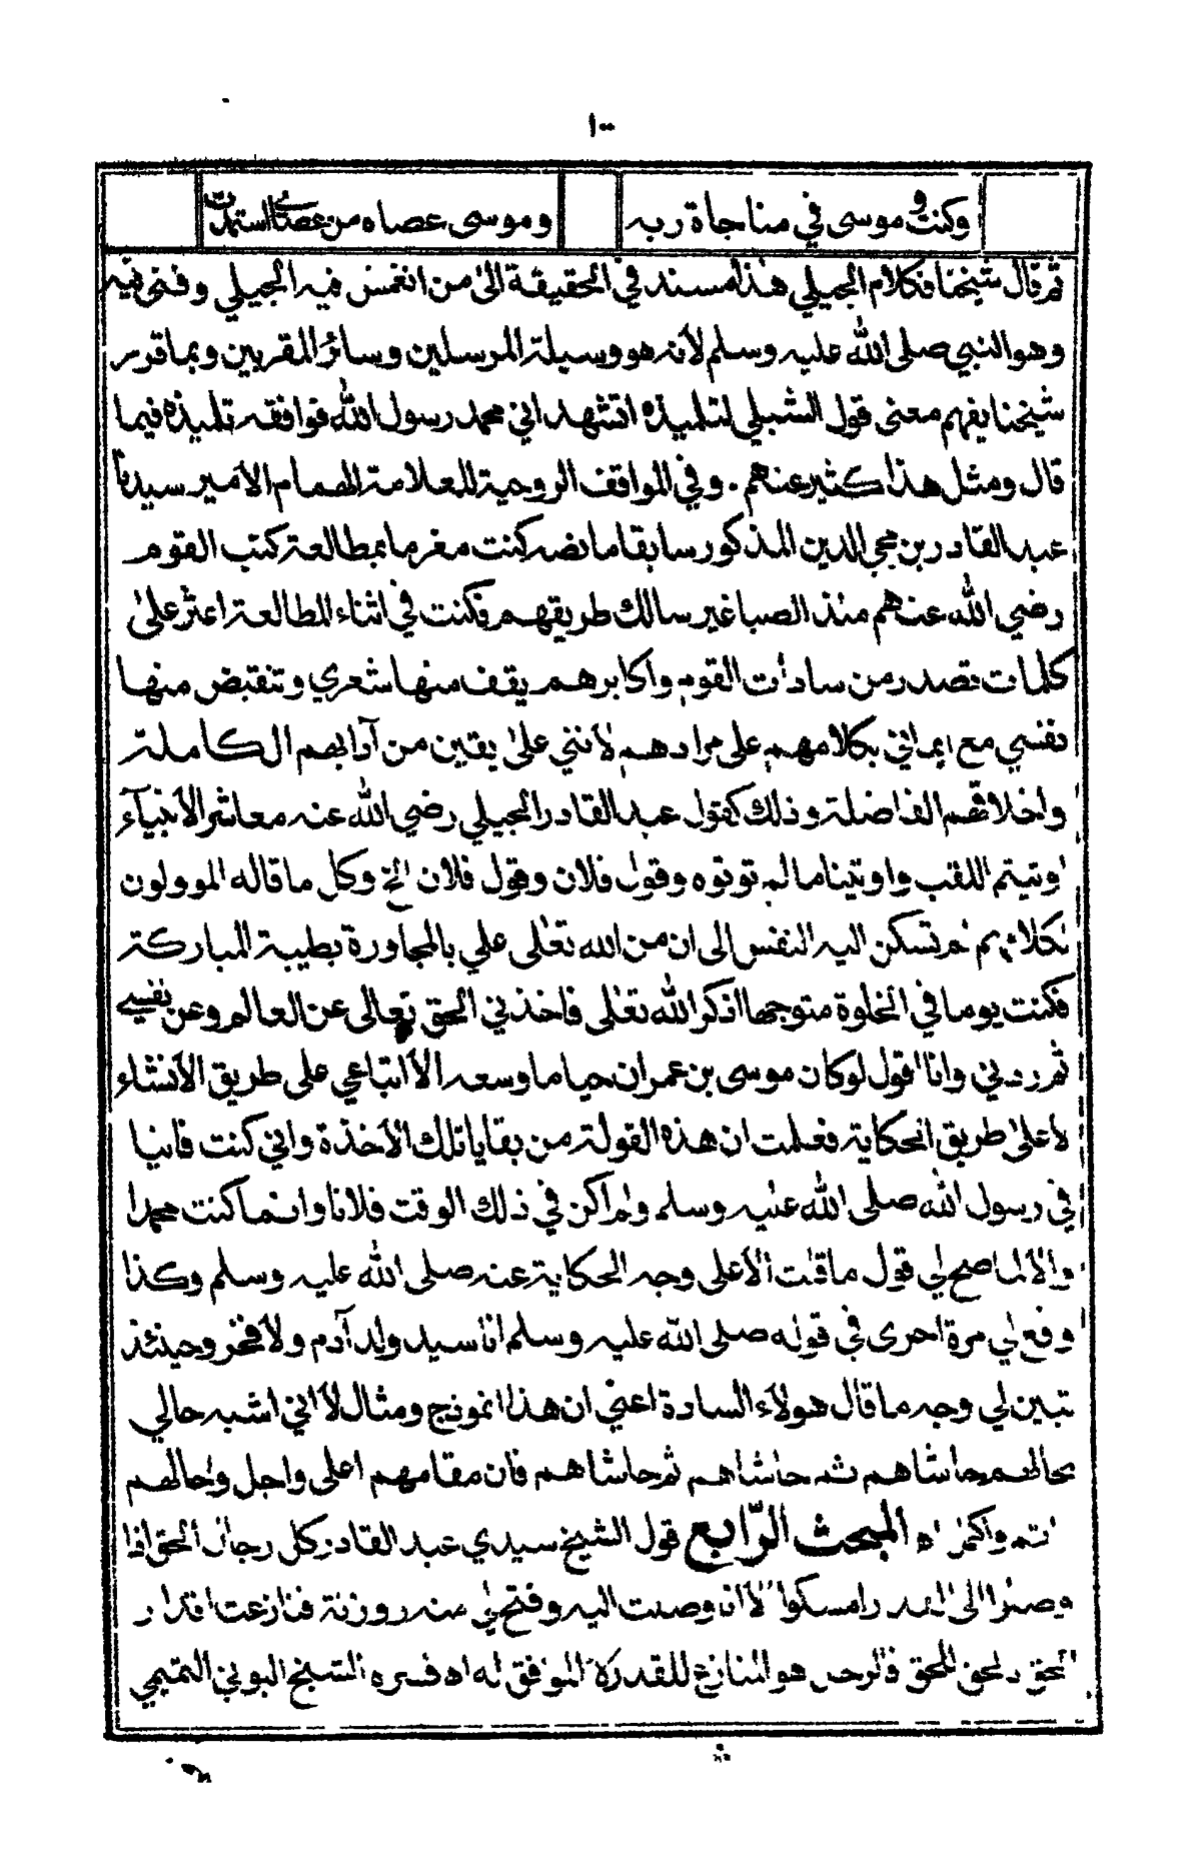 ١٠٠
وكنت وموسى في مناجاة ربه وموسى عصاه من عصاي استمدت
ثم قال شيخنا فكلام الجيلي هذا مسند في الحقيقة الى من انغمس فيه الجيلي وفنى فيه
وهو النبي صلى الله عليه وسلم لأنه هو وسيلة المرسلين وسائر المقربين وبما قرر
شيخنا يفهم معنى قول الشبلي لتلميذه اتشهد اني محمد رسول الله فوافقه تلميذه فيما
قال ومثل هذا كثير عنهم . وفي المواقف الروحية للعلامة الهمام الأمير سيدنا
عبد القادر بن محي الدين المذكور سابقا ما نصه كنت مغرما بمطالعة كتب القوم
رضي الله عنهم منذ الصبا غير سالك طريقهم فكنت في اثناء المطالعة اعثر على
كلمات تصدر من سادات القوم واكابرهم يقف منها شعري وتنقبض منها
نفسي مع ايماني بكلامهم على مرادهم لأنني على يقين من آدابهم الكاملة
واخلاقهم الفاضلة وذلك كقول عبد القادر الجيلي رضي الله عنه معاشر الأنبياء
اوتيتم اللقب واوتينا ما لم توتوه وقول فلان وقول فلان الخ وكل ما قاله الموولون
لكلامهم لم تسكن اليه النفس الى ان من الله تعالى علي بالمجاورة بطيبة المباركة
فكنت يوما في الخلوة متوجها اذكر الله تعالى فاخذني الحق تعالى عن العالم وعن نفسي
ثم ردني وانا اقول لو كان موسى بن عمران حيا ما وسعه الا اتباعي على طريق الأنشاء
لا على طريق الحكاية فعلمت ان هذه القولة من بقايا تلك الأخذة واني كنت فانيا
في رسول الله صلى الله عليه وسلم ولم اكن في ذلك الوقت فلانا وانما كنت محمدا
والا لما صح لي قول ما قلت الا على وجه الحكاية عنه صلى الله عليه وسلم وكذا
وقع لي مرة اخرى في قوله صلى الله عليه وسلم انا سيد ولد آدم ولا فخر وحينئذ
تبين لي وجه ما قال هولاء السادة اعني ان هذا انموذج ومثال لا اني اشبه حالي
بحالهم حاشاهم ثم حاشاهم ثم حاشاهم فان مقامهم اعلى واجل وحالهم
اتم واكمل اه المبحث الرابع قول الشيخ سيدي عبد القادر كل رجال الحق اذا
وصلوا الى القدر امسكوا الا انا وصلت اليه وفتح لي منه روزنة فنازعت اقدار
الحق بالحق للحق فالرجل هو المنازع للقدر الموفق له اه فسره الشيخ البوني التميمي